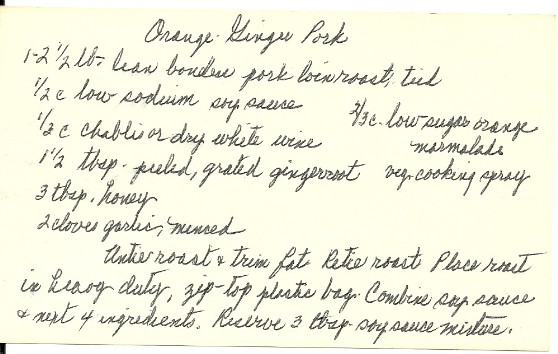 Orange-Ginger Pork
1-2 1/2 lb- lean boneless pork loin roast, tied
1/2 c low sodium soy sauce
2/3 c. low sugar orange marmalade
1/3 c chablis or dry white wine
1 1/2 tbsp. peeled, grated gingerroot veg. cooking spray
3 tbsp. honey
2 cloves garlic, minced
Untie roast & trim fat. Retie roast Place roast
in heavy duty, zip-top plastic bag. Combine soy sauce
& next 4 ingredients. Reserve 3 tbsp soy sauce mixture.